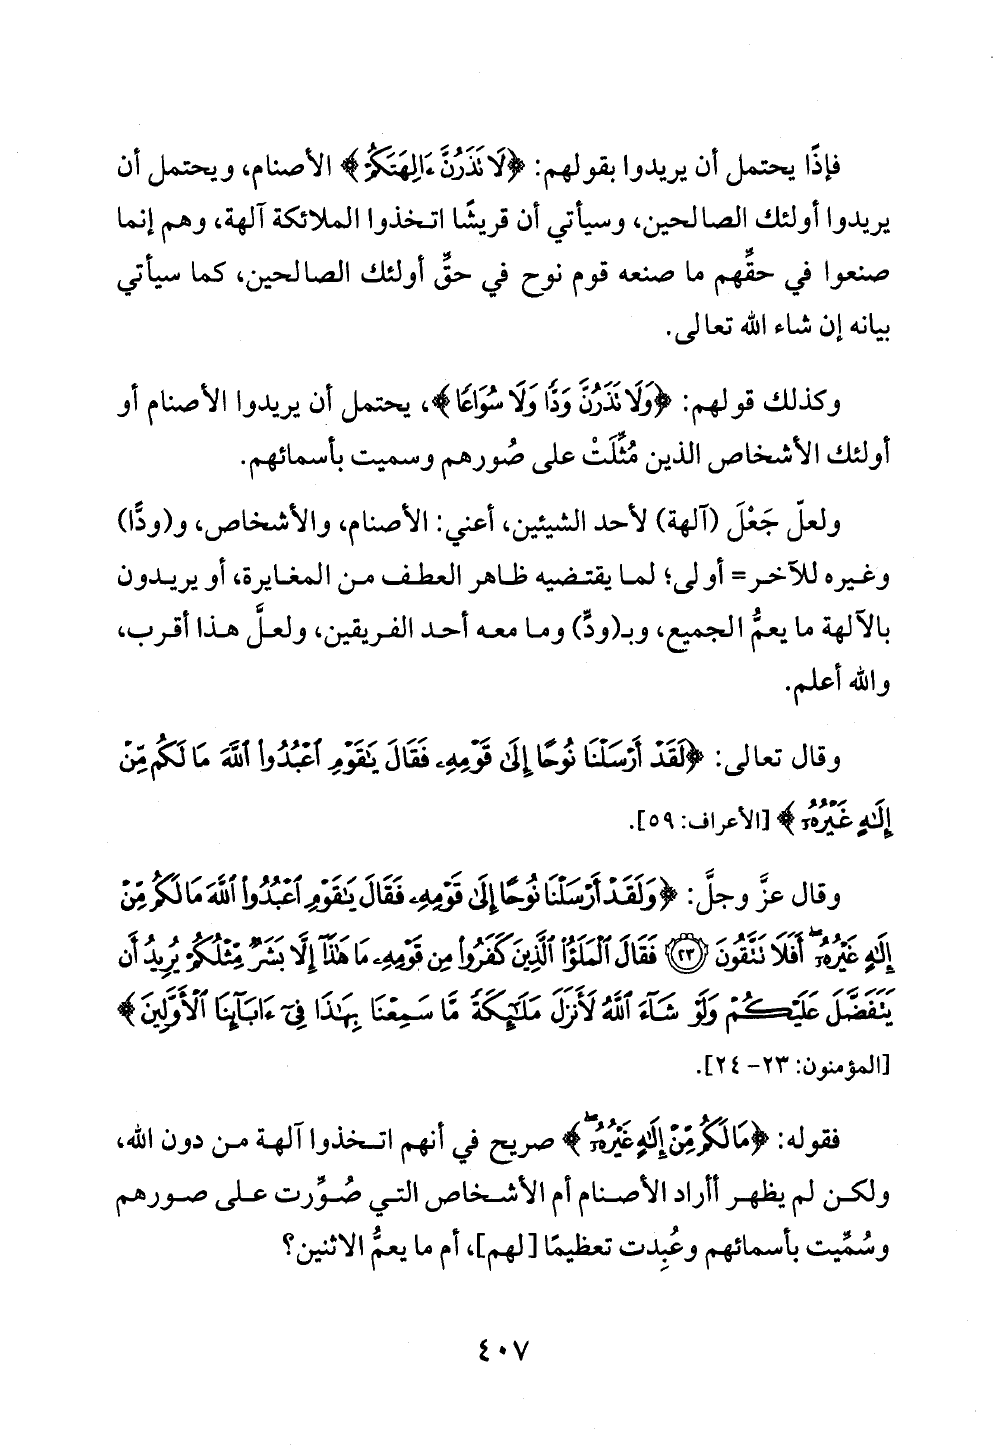 فإذًا يحتمل أن يريدوا بقولهم: ﴿لَا تَذَرُنَّ ءَالِهَتَكُمْ﴾ الأصنام، ويحتمل أن
يريدوا أولئك الصالحين، وسيأتي أن قريشًا اتخذوا الملائكة آلهة، وهم إنما
صنعوا في حقِّهم ما صنعه قوم نوح في حقِّ أولئك الصالحين، كما سيأتي
بيانه إن شاء الله تعالى.
وكذلك قولهم: ﴿وَلَا تَذَرُنَّ وَدًّا وَلَا سُوَاعًا﴾، يحتمل أن يريدوا الأصنام أو
أولئك الأشخاص الذين مُثِّلَتْ على صُورهم وسميت بأسمائهم.
ولعلّ جَعْلَ (آلهة) لأحد الشيئين، أعني: الأصنام، والأشخاص، و(ودًّا)
وغيره للآخر= أولى؛ لما يقتضيه ظاهر العطف من المغايرة، أو يريدون
بالآلهة ما يعمُّ الجميع، وبـ(ودٍّ) وما معه أحد الفريقين، ولعلَّ هذا أقرب،
والله أعلم.
وقال تعالى: ﴿لَقَدْ أَرْسَلْنَا نُوحًا إِلَىٰ قَوْمِهِۦ فَقَالَ يَٰقَوْمِ ٱعْبُدُوا۟ ٱللَّهَ مَا لَكُم مِّنْ
إِلَٰهٍ غَيْرُهُۥٓ﴾ [الأعراف: ٥٩].
وقال عزَّ وجلَّ: ﴿وَلَقَدْ أَرْسَلْنَا نُوحًا إِلَىٰ قَوْمِهِۦ فَقَالَ يَٰقَوْمِ ٱعْبُدُوا۟ ٱللَّهَ مَا لَكُم مِّنْ
إِلَٰهٍ غَيْرُهُۥٓ ۖ أَفَلَا تَتَّقُونَ ٢٣ فَقَالَ ٱلْمَلَؤُا۟ ٱلَّذِينَ كَفَرُوا۟ مِن قَوْمِهِۦ مَا هَٰذَآ إِلَّا بَشَرٌ مِّثْلُكُمْ يُرِيدُ أَن
يَتَفَضَّلَ عَلَيْكُمْ وَلَوْ شَآءَ ٱللَّهُ لَأَنزَلَ مَلَٰٓئِكَةً مَّا سَمِعْنَا بِهَٰذَا فِىٓ ءَابَآئِنَا ٱلْأَوَّلِينَ﴾
[المؤمنون: ٢٣- ٢٤].
فقوله: ﴿مَا لَكُم مِّنْ إِلَٰهٍ غَيْرُهُۥٓ ۖ﴾ صريح في أنهم اتخذوا آلهة من دون الله،
ولكن لم يظهر أأراد الأصنام أم الأشخاص التي صُوِّرت على صورهم
وسُمِّيت بأسمائهم وعُبِدت تعظيمًا [لهم]، أم ما يعمُّ الاثنين؟
٤٠٧